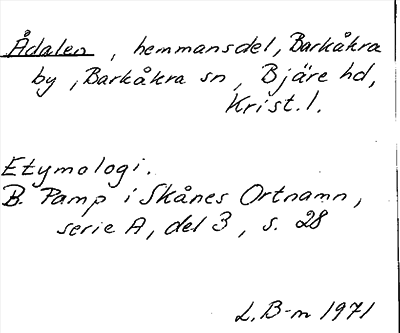 Ådalen, hemmansdel, Barkåkra
by, Barkåkra sn, Bjäre hd,
Krist. l.
Etymologi.
B. Pamp i Skånes Ortnamn,
serie A, del 3, s. 28
L. B-m 1971